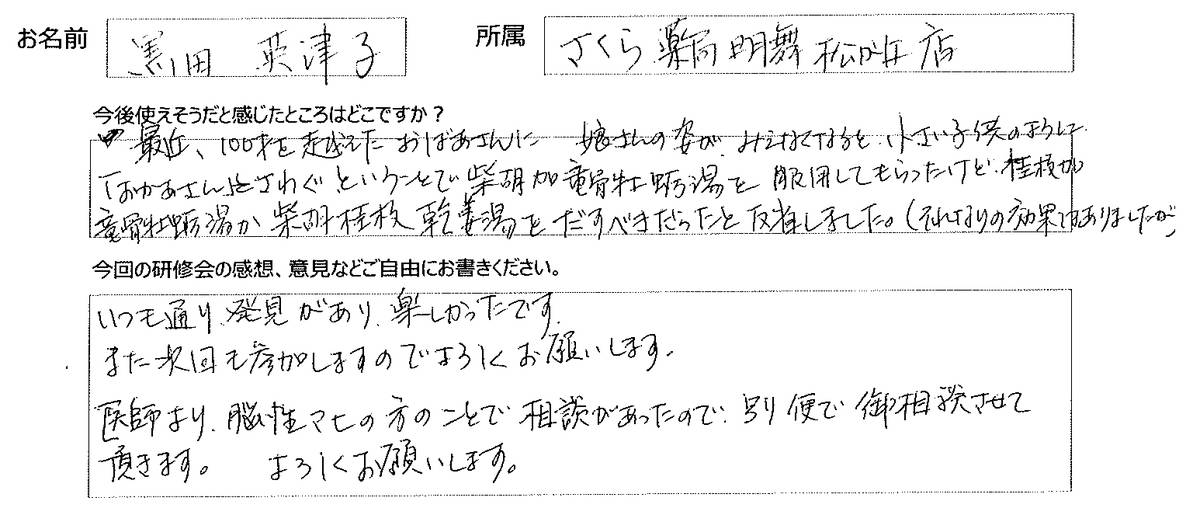 お名前 黒田 英津子 所属 さくら薬局明舞松が丘店
今後使えそうだと感じたところはどこですか？
最近、100才を越えたおばあさんに 娘さんの姿がみえなくなると、小さい子供のようにして
「おかあさん」とさわぐということで柴胡加竜骨牡蛎湯を服用してもらったけど、桂枝加
竜骨牡蛎湯か柴胡桂枝乾姜湯をだすべきだったと反省しました。（それなりの効果はありましたが）
今回の研修会の感想、意見などご自由にお書きください。
いつも通り、発見があり、楽しかったです。
また次回も参加しますのでよろしくお願いします。
医師より、脳性マヒの方のことで相談があったので、別便で御相談させて
頂きます。 よろしくお願いします。